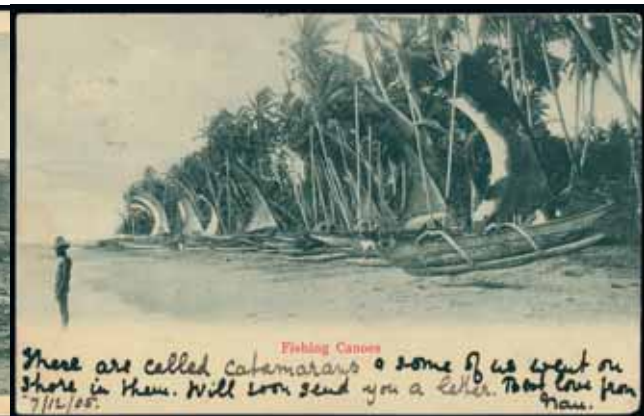 Fishing Canoes
These are called catamarans & some of us went on
shore in them. Will soon send you a letter. Best love from
7/12/05. Nan.